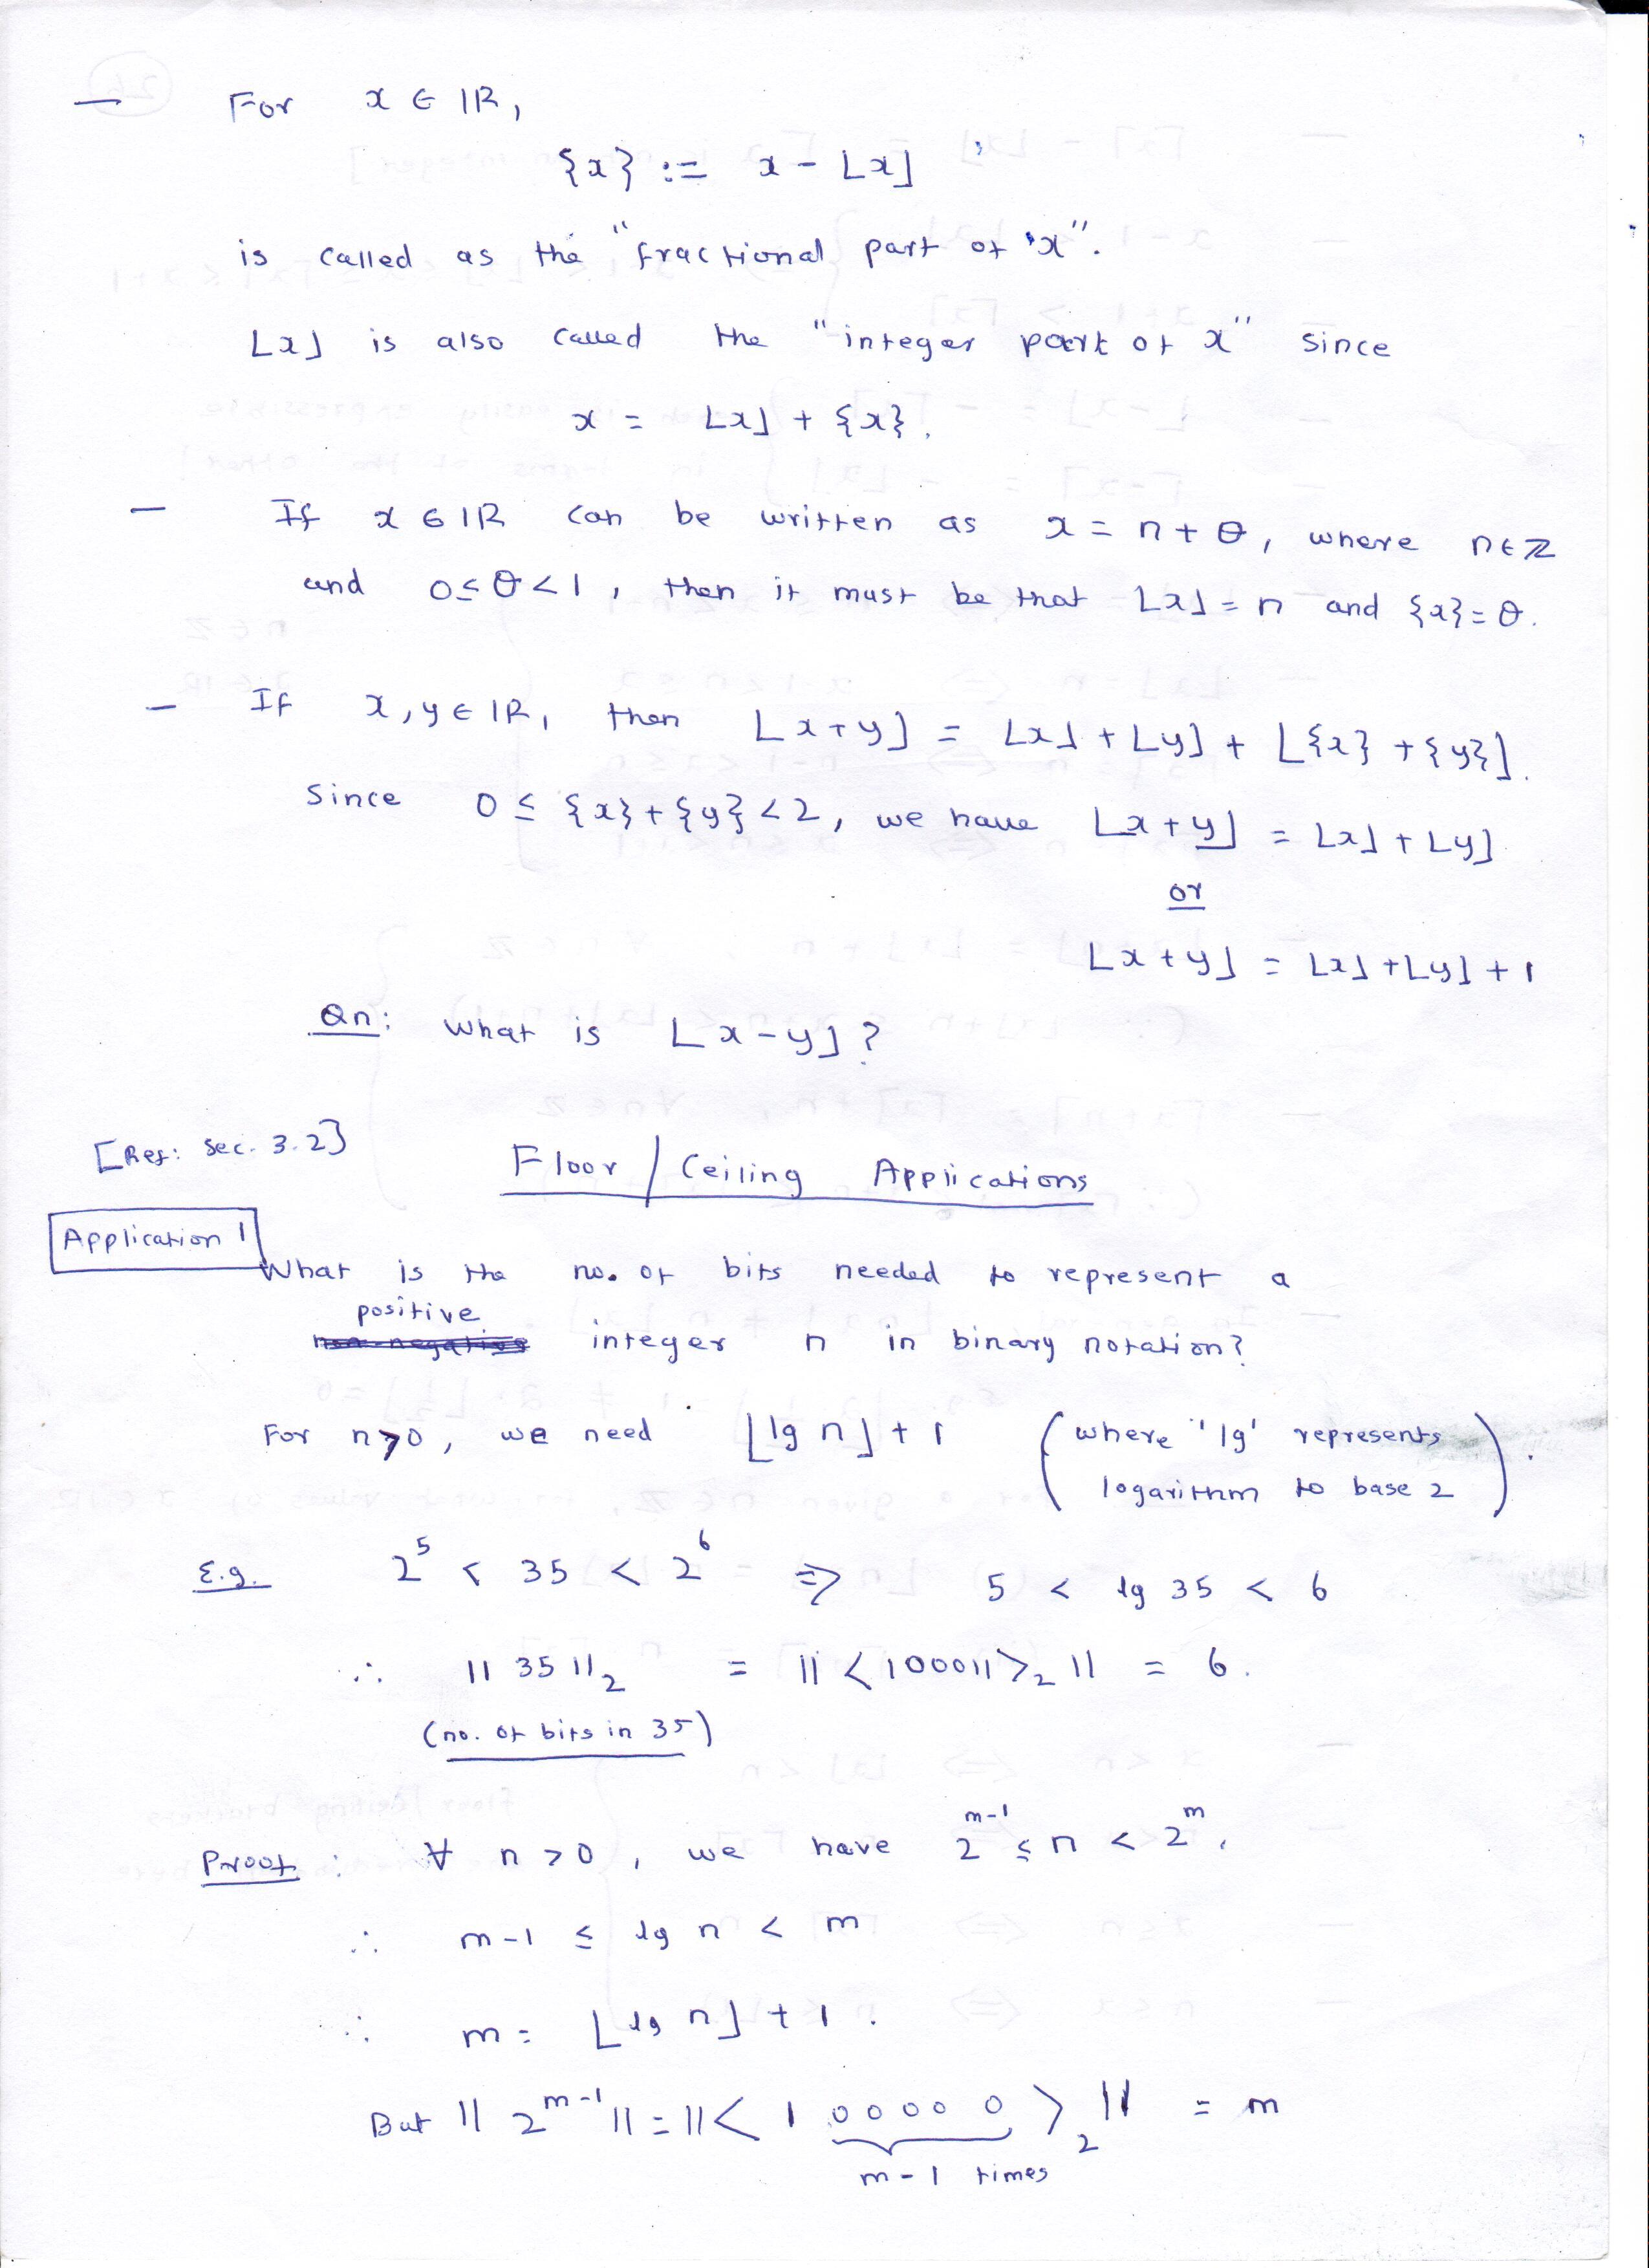 — For x ∈ ℝ,
{x} := x - ⌊x⌋
is called as the "fractional part of x".
⌊x⌋ is also called the "integer part of x" since
x = ⌊x⌋ + {x}.
— If x ∈ ℝ can be written as x = n + θ, where n ∈ ℤ
and 0 ≤ θ < 1, then it must be that ⌊x⌋ = n and {x} = θ.
— If x, y ∈ ℝ, then ⌊x+y⌋ = ⌊x⌋ + ⌊y⌋ + ⌊{x} + {y}⌋.
Since 0 ≤ {x} + {y} < 2, we have ⌊x+y⌋ = ⌊x⌋ + ⌊y⌋
or
⌊x+y⌋ = ⌊x⌋ + ⌊y⌋ + 1
Qn: What is ⌊x-y⌋?
[Ref: Sec. 3.2]
Floor / Ceiling Applications
Application 1
What is the no. of bits needed to represent a
positive
non-negative integer n in binary notation?
For n>0, we need ⌊lg n⌋ + 1 (where 'lg' represents
logarithm to base 2).
E.g. 2^5 < 35 < 2^6 ⇒ 5 < lg 35 < 6
∴ || 35 ||_2 = || <100011>_2 || = 6.
(no. of bits in 35)
Proof: ∀ n > 0, we have 2^{m-1} ≤ n < 2^m.
∴ m-1 ≤ lg n < m
∴ m = ⌊lg n⌋ + 1.
But || 2^{m-1} || = || < 1 0 0 0 0 0 >_2 || = m
m-1 times